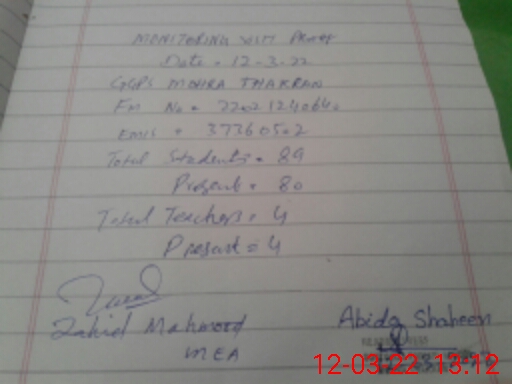 MONITORING VISIT PROOF
Date = 12-3-22
GGPS MOHRA THAKRAN
EMIS = 37360502
Total Students = 89
Present = 80
Total Teachers = 4
Present = 4
Zahid Mahmood
MEA
Abida Shaheen
12-03-22 13:12